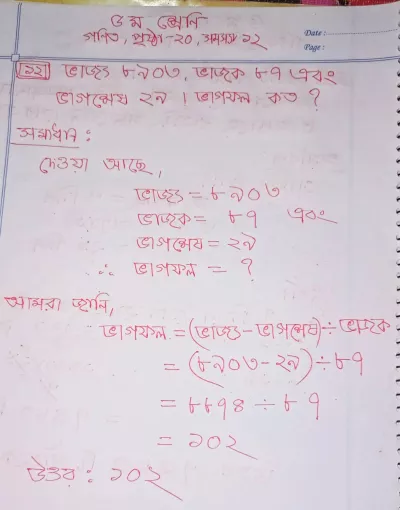 ৩য় শ্রেণি
গণিত, পৃষ্ঠা-২০, সমস্যা ১২
Date :
Page :
১২) ভাজ্য ৮৯০৩, ভাজক ৮৭ এবং
ভাগশেষ ২৯। ভাগফল কত ?
সমাধান :
দেওয়া আছে,
ভাজ্য = ৮৯০৩
ভাজক = ৮৭ এবং
ভাগশেষ = ২৯
∴ ভাগফল = ?
আমরা জানি,
ভাগফল = (ভাজ্য - ভাগশেষ) ÷ ভাজক
= (৮৯০৩ - ২৯) ÷ ৮৭
= ৮৮৭৪ ÷ ৮৭
= ১০২
উত্তর : ১০২